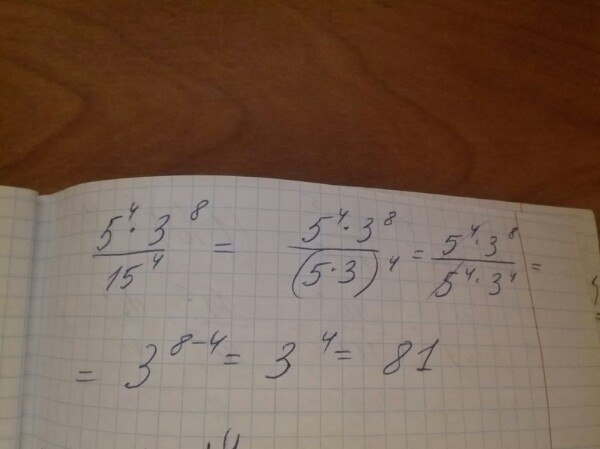 5⁴·3⁸/15⁴ = 5⁴·3⁸/(5·3)⁴ = 5⁴·3⁸/5⁴·3⁴ =
= 3⁸⁻⁴ = 3⁴ = 81